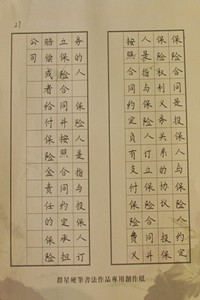 21
保险合同是投保人与保险人约定
保险权利义务关系的协议 投保
人是指与保险人订立保险合同并
按照合同约定负有支付保险费义
务的人 保险人是指与投保人订
立保险合同并按照合同约定承担
赔偿或者给付保险金责任的保险
公司
群星硬筆書法作品專用創作紙